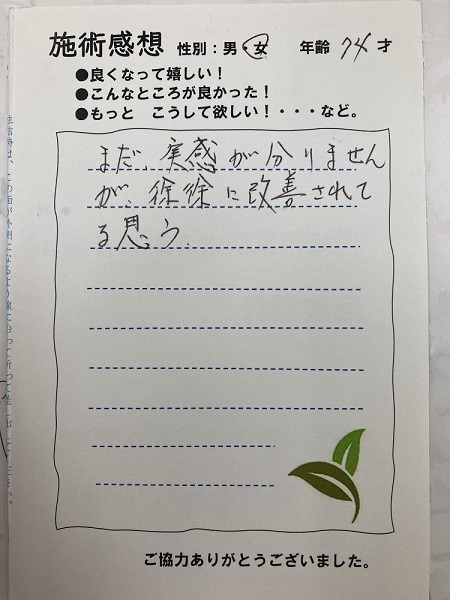 施術感想 性別:男・女 年齢 74 才
●良くなって嬉しい!
●こんなところが良かった!
●もっと こうして欲しい!・・・など。
まだ、実感が分りません
が、徐徐に改善されて
る思う。
ご協力ありがとうございました。